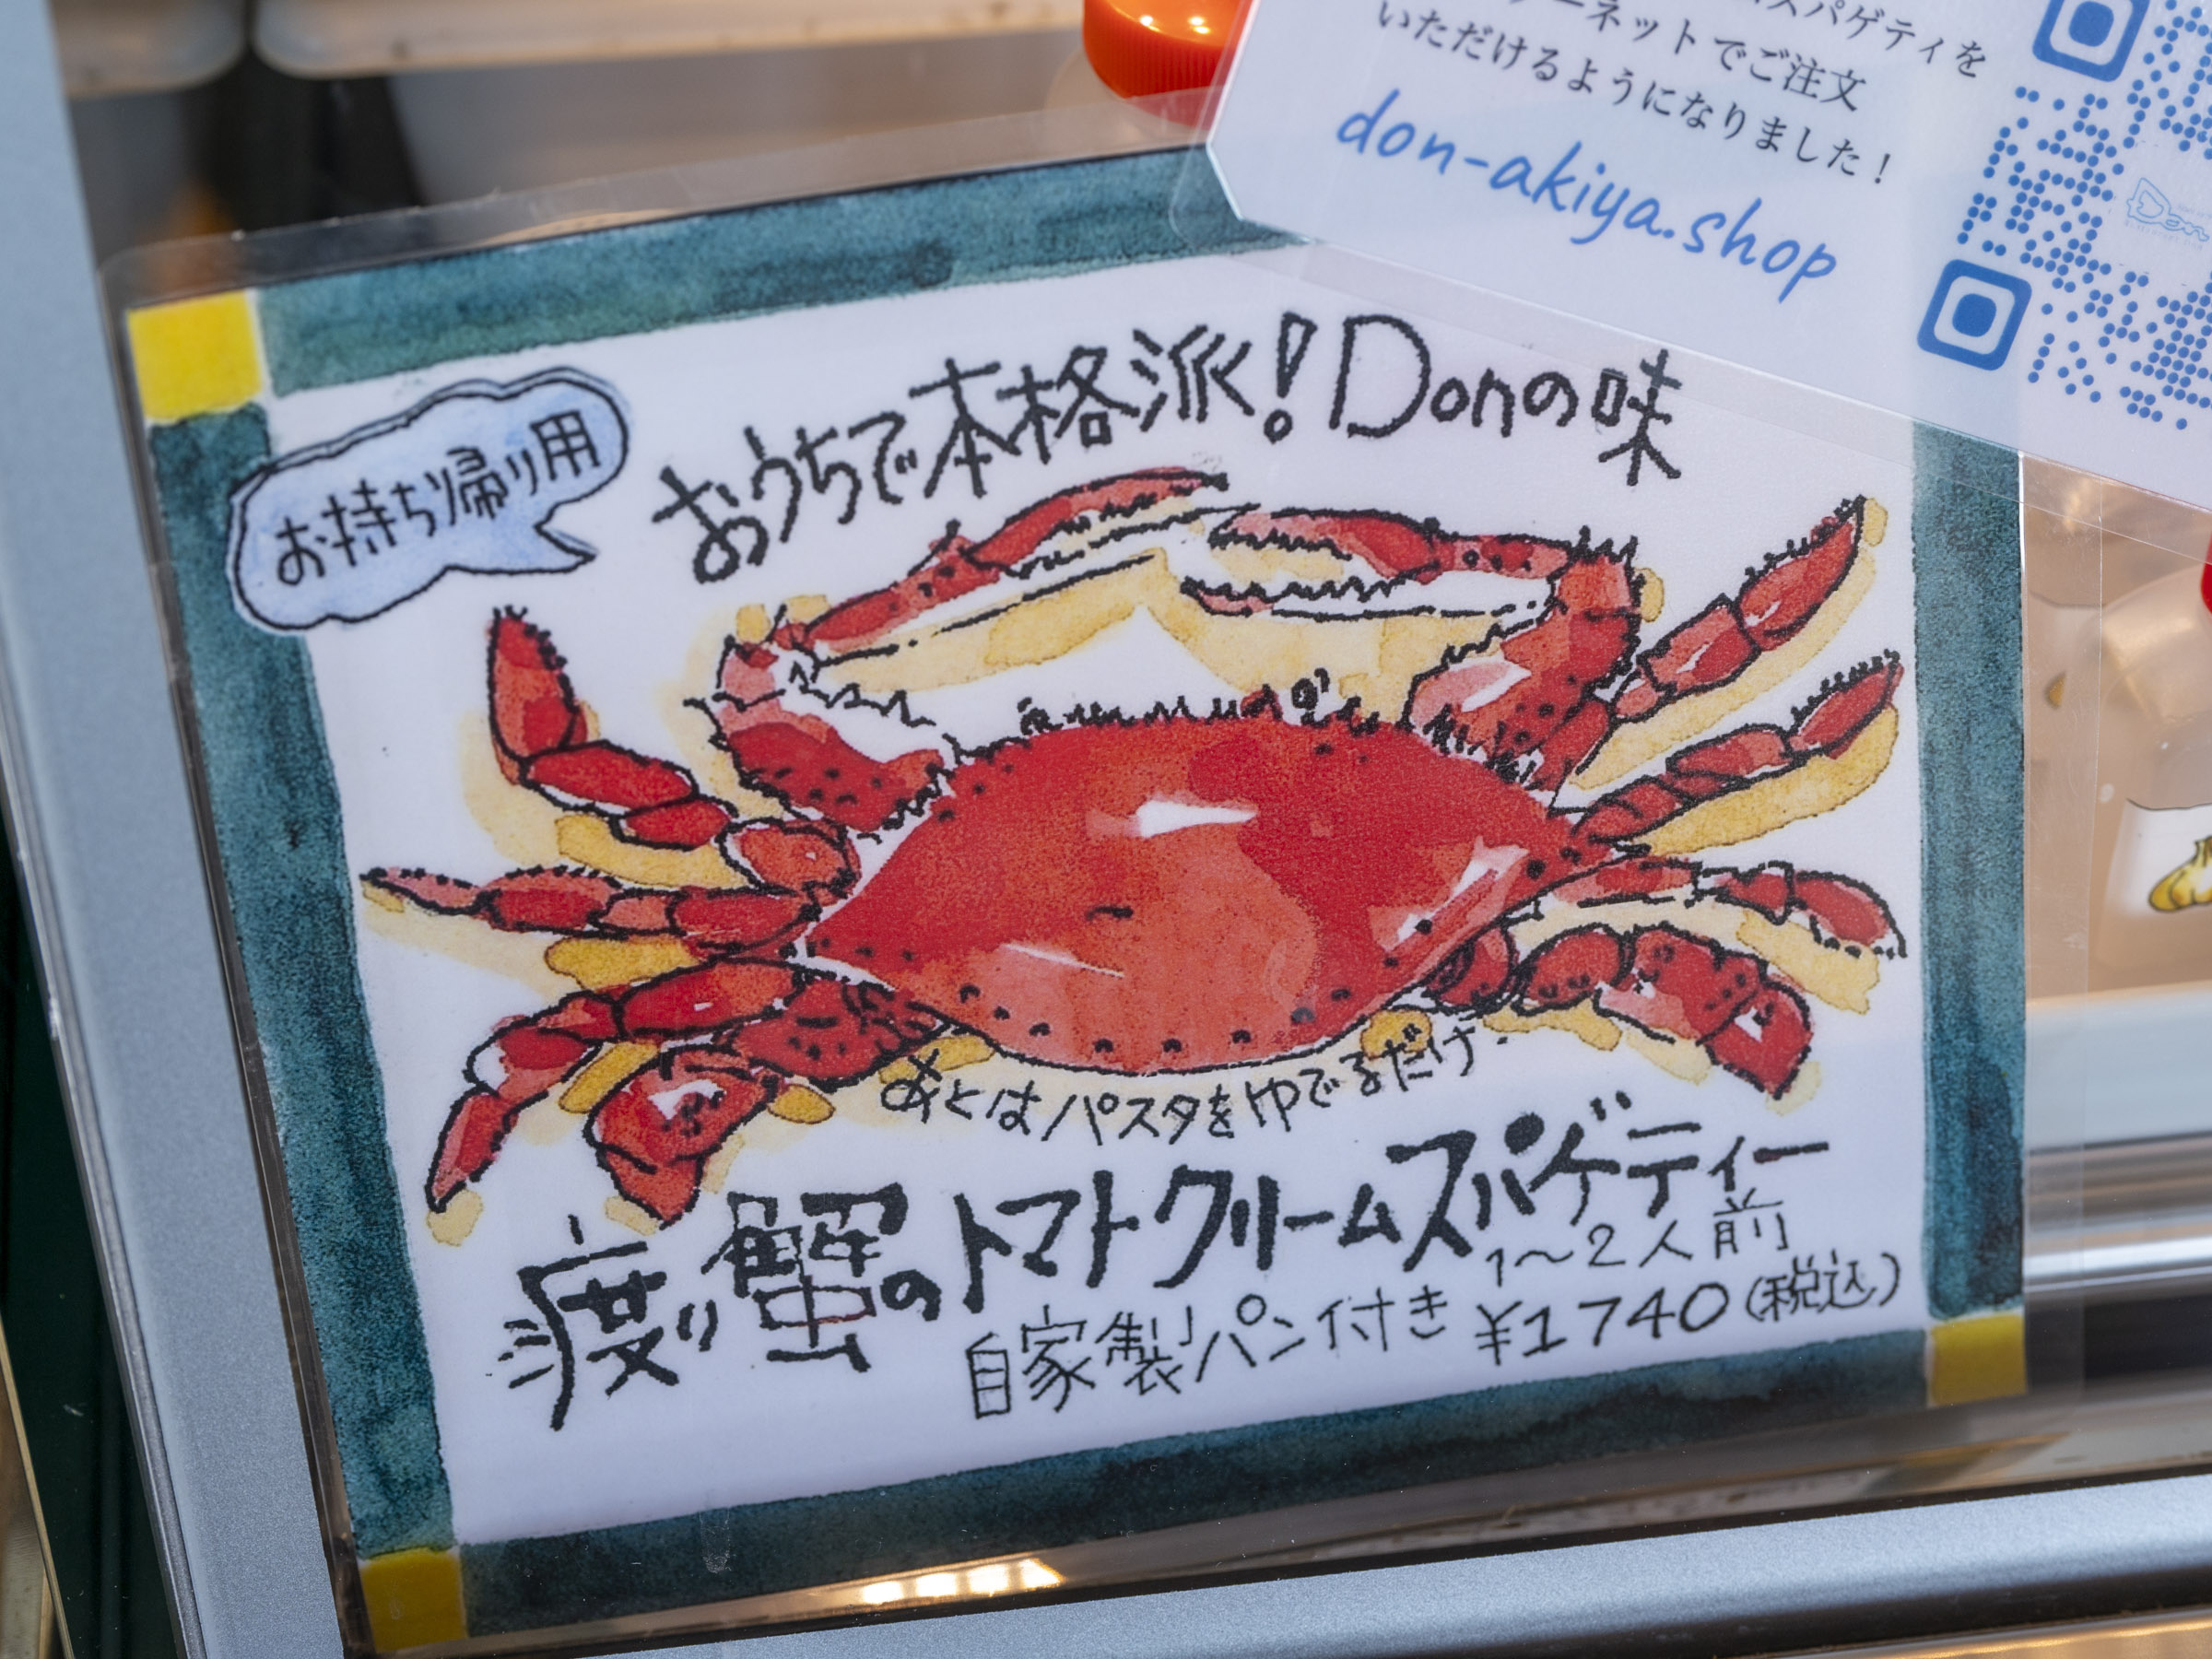 スパゲティを
ーネットでご注文
いただけるようになりました！
don-akiya.shop
Don
お持ち帰り用
おうちで本格派！Donの味
あとはパスタをゆでるだけ
渡り蟹のトマトクリームスパゲティー
1〜2人前
自家製パン付き ¥1740(税込)